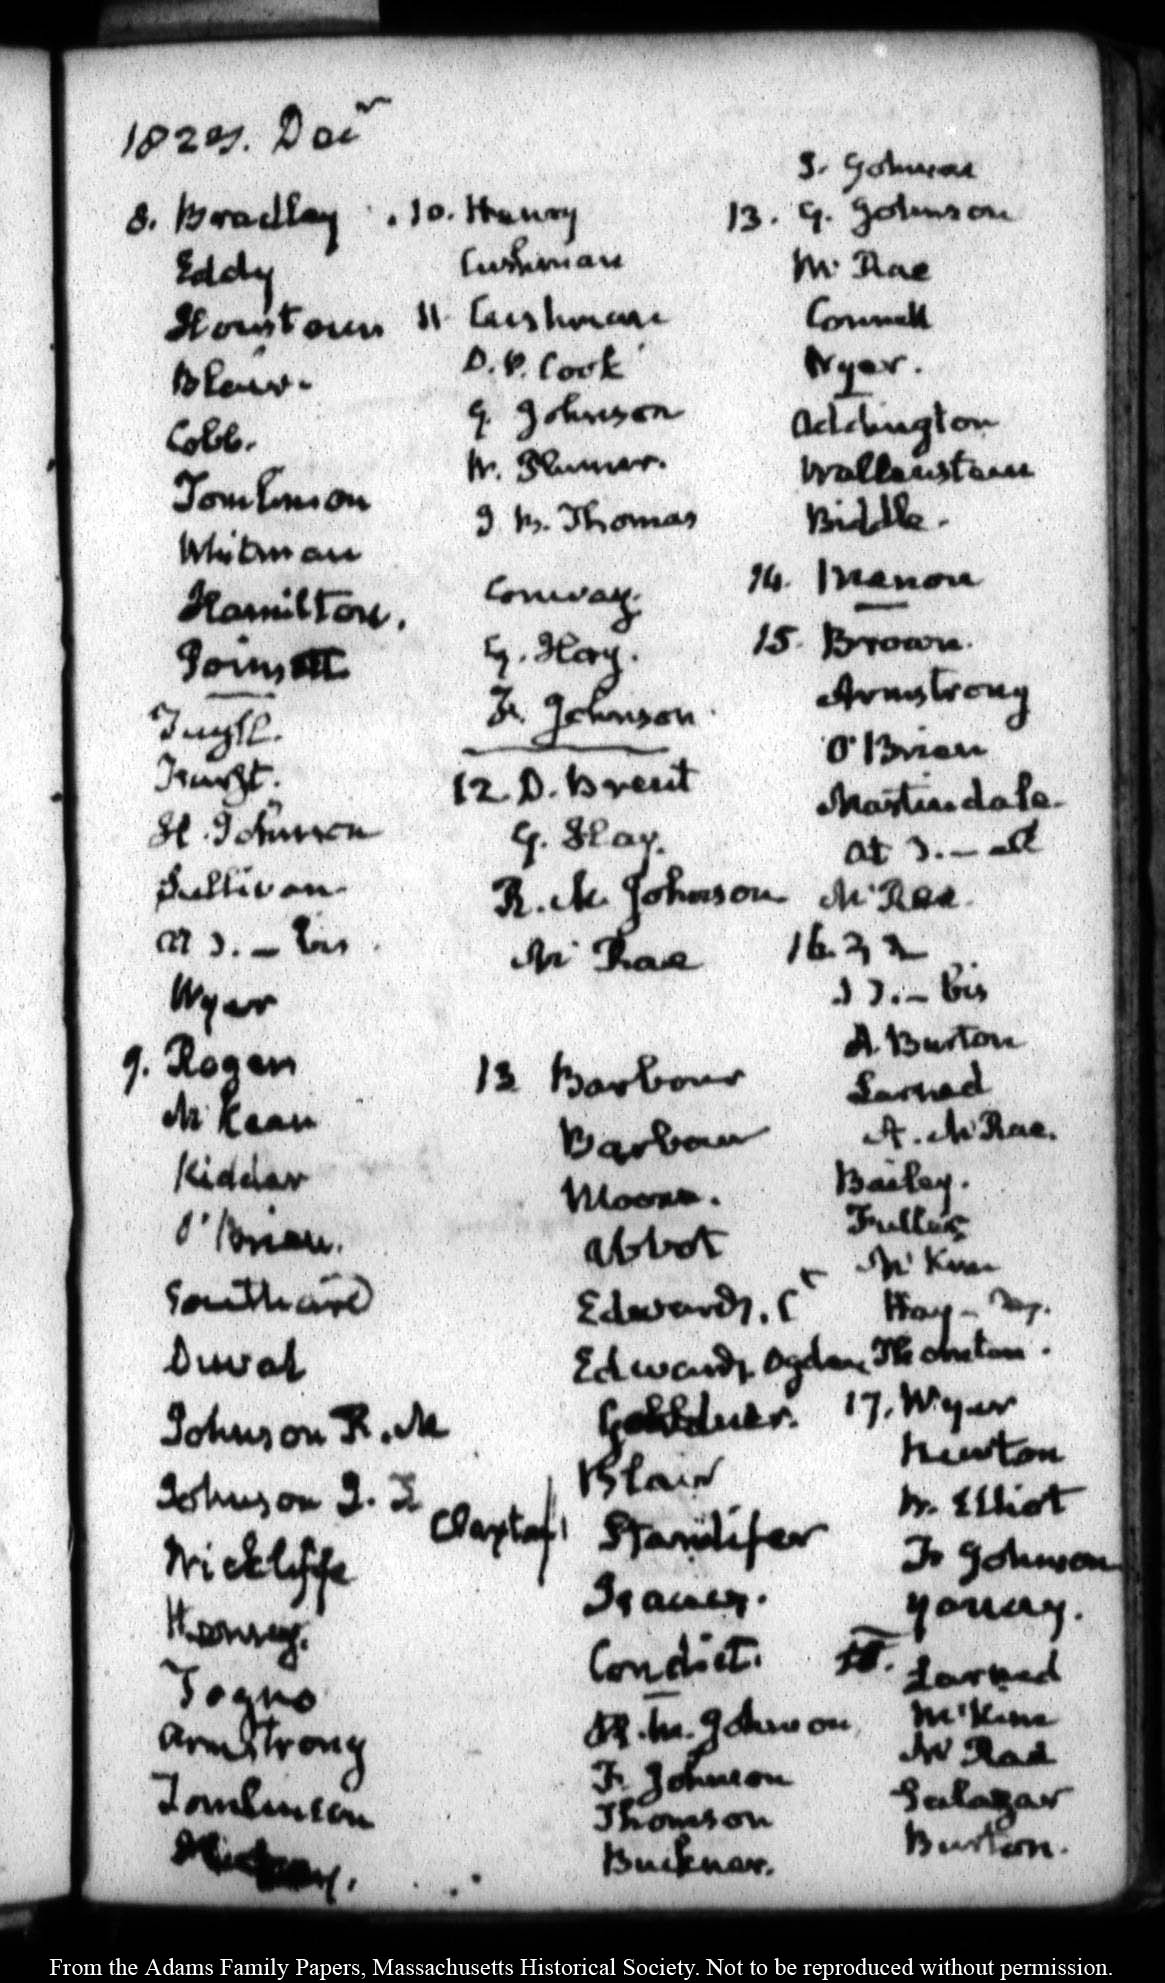 Decr
8. Bradley
Eddy
Houstoun
Blair.
Cobb.
Tomlinson
Whitman
Hamilton.
Poinsett.
Tuyll.
H. Johnson
Sullivan.
bis
Wyer
9. Rogers
McKean
Kidder
O'Brien.
Southard
Duval
Johnson R. M
Johnson J. T
Wickliffe
Togno
Armstrong
Tomlinson
10. Henry
Cushman
11. Cushman
D. P. Cook
G. Johnson
W. Plumer.
J B. Thomas
Conway.
G. Hay.
Fr. Johnson.
12. D. Brent
G. Hay.
R. M. Johnson
McRae
13 Barbour
Barbour
Moore.
Abbot
Edwards. Ct
Edwards Ogden
Blair
Claxton
Standifer
Isacks.
Condict.
R. M. Johnson
Fr. Johnson
Thomson
Buckner.
J. Johnson
13. G. Johnson
McRae
Connell
Wyer.
Addington
Wallenstein
Biddle.
14.
15. Brown.
Armstrong
O'Brien
Martindale.
McRae.
16.
bis
A. Burton
Larned
A. McRae.
Bailey.
Fuller
McKim
Hay
Thornton.
17. Wyer
Newton
W. Elliot
Fr Johnson
18.
Larned
McKim
McRae
Salazar
Burton.
From the Adams Family Papers, Massachusetts Historical Society. Not to be reproduced without permission.